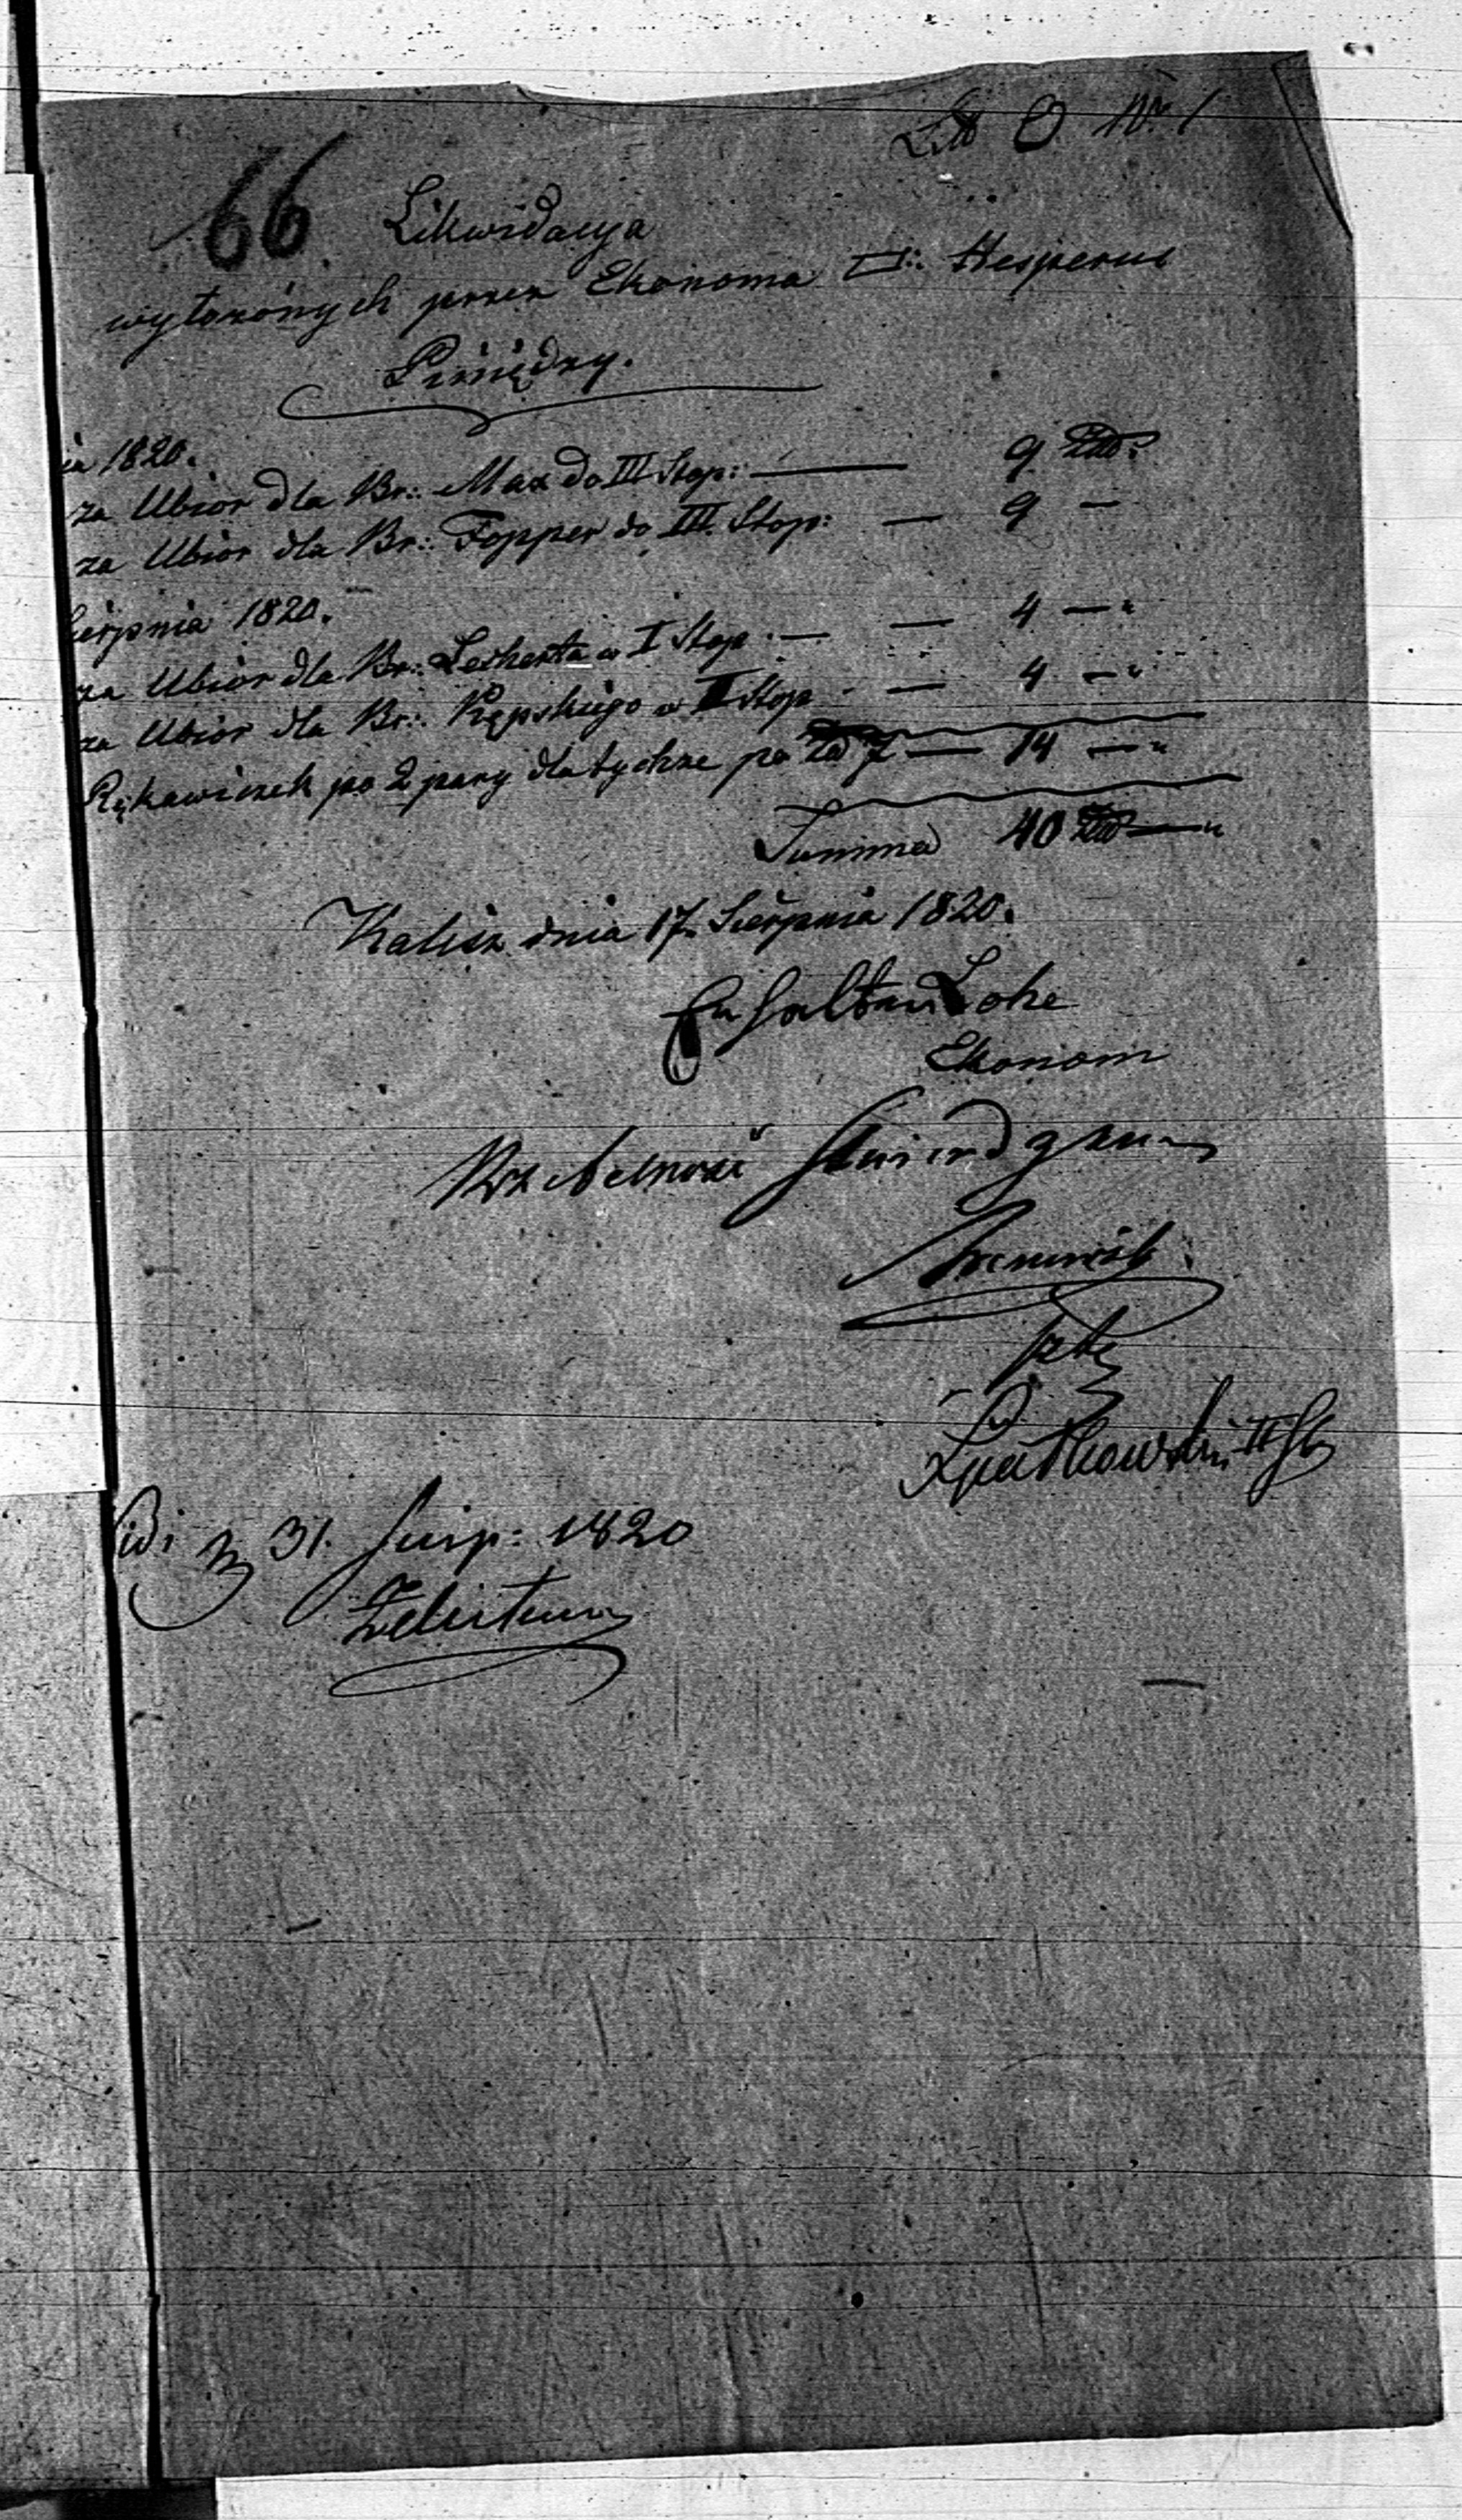 Litt O Nr 1
66. Likwidacyja
wyłożonych przez Ekonoma □:. Hesperus
Pieniędzy.
ia 1820.
za Ubior dla Br:. Max do III Stop: — 9 Złd:
za Ubior dla Br:. Topper do III. Stop: — 9 —
Sierpnia 1820.
za Ubior dla Br:. Lecherta w I Stop. — — 4 — "
za Ubior dla Br:. Kępskiego w I Stop — 4 — "
Rękawiczek po 2 pary dla tychże po Złd 7 — 14 — "
Summa 40 Złd — "
Kalisz dnia 17. Sierpnia 1820.
Loke
Ekonom
Stwierdzam
II
Vidi 31. Sierp: 1820